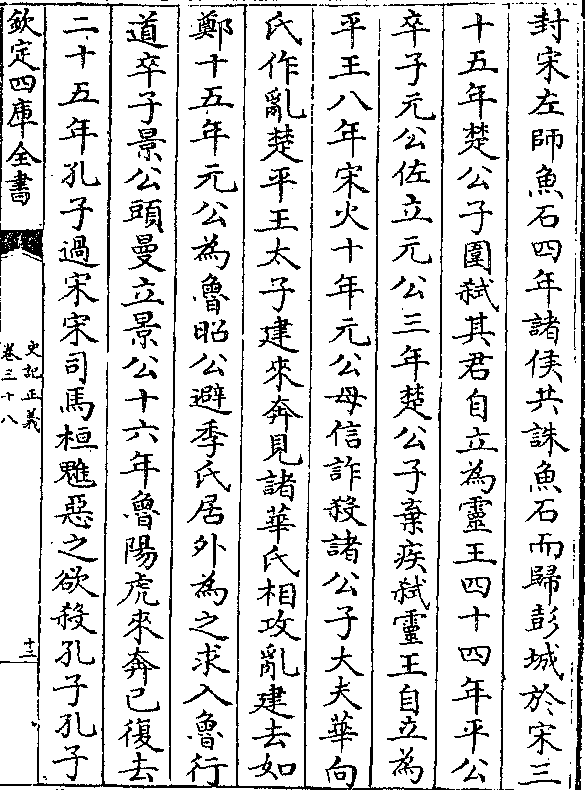 封宋左師魚石四年諸侯共誅魚石而歸彭城於宋三
十五年楚公子圍弑其君自立為靈王四十四年平公
卒子元公佐立元公三年楚公子棄疾弑靈王自立為
平王八年宋火十年元公毋信詐殺諸公子大夫華向
氏作亂楚平王太子建來奔見諸華氏相攻亂建去如
鄭十五年元公為魯昭公避季氏居外為之求入魯行
道卒子景公頭曼立景公十六年魯陽虎來奔已復去
二十五年孔子過宋宋司馬桓魋惡之欲殺孔子孔子
欽定四庫全書
史記正義
卷三十八
十三